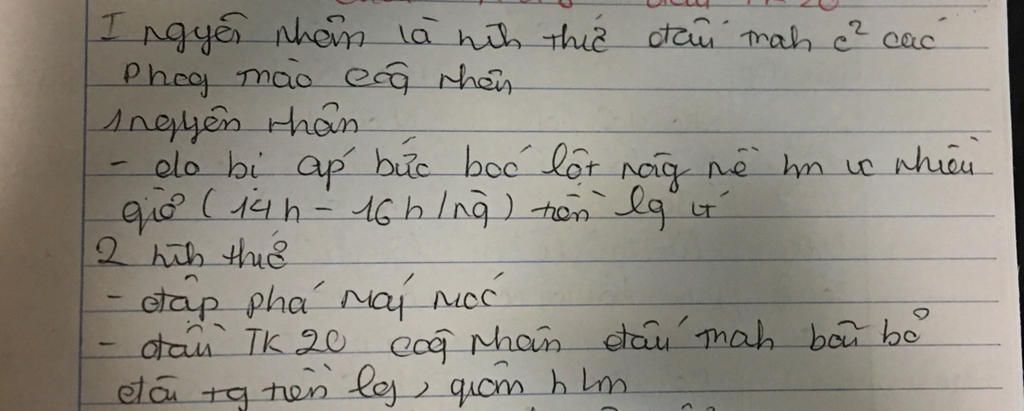 đầu TK 20
I nguyên nhân là hìh thức đấu mah c² các
phog mào côg nhân
1 nguyên nhân
- do bị áp bức bóc lột nặg nề lm vc nhiều
giờ (14h - 16h/ng) tiền lg ít
2 hìh thức
- đập phá máy móc
- đầu TK 20 côg nhân đấu mah bãi bỏ
đòi tg tiền lg, giảm h lm